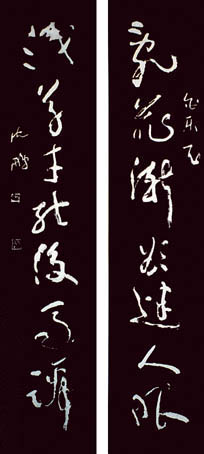 乱花渐欲迷人眼
浅草才能没马蹄